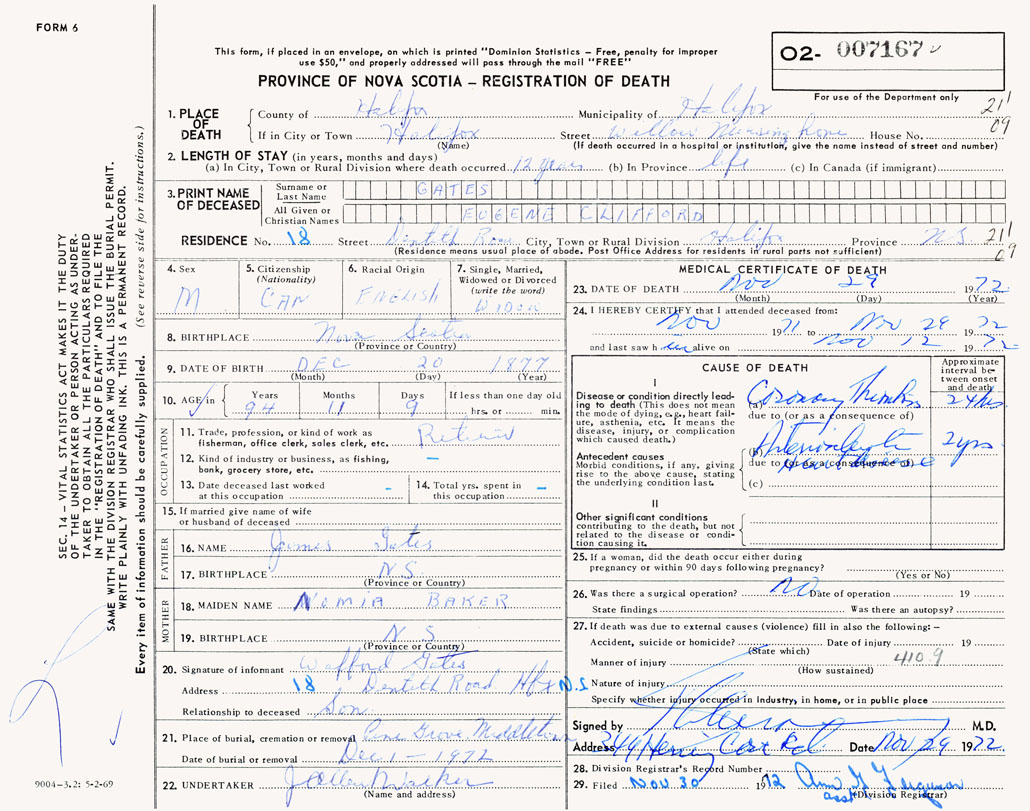 FORM 6
This form, if placed in an envelope, on which is printed "Dominion Statistics – Free, penalty for improper
use $50," and properly addressed will pass through the mail "FREE"
O2- 007167
For use of the Department only
PROVINCE OF NOVA SCOTIA – REGISTRATION OF DEATH
211
09
1. PLACE OF DEATH
County of Halifax Municipality of Halifax
If in City or Town Halifax Street Willow Nursing home House No.
(Name) (If death occurred in a hospital or institution, give the name instead of street and number)
2. LENGTH OF STAY (in years, months and days)
(a) In City, Town or Rural Division where death occurred 12 years (b) In Province life (c) In Canada (if immigrant)
3. PRINT NAME OF DECEASED
Surname or Last Name GATES
All Given or Christian Names EUGENE CLIFFORD
RESIDENCE No. 18 Street Dentith Road City, Town or Rural Division Halifax Province N.S. 211
09
(Residence means usual place of abode. Post Office Address for residents in rural parts not sufficient)
4. Sex
M
5. Citizenship
(Nationality)
CAN
6. Racial Origin
ENGLISH
7. Single, Married,
Widowed or Divorced
(write the word)
WIDOW
8. BIRTHPLACE Nova Scotia
(Province or Country)
9. DATE OF BIRTH DEC 20 1877
(Month) (Day) (Year)
10. AGE in Years Months Days If less than one day
94 11 9 hrs. or min.
OCCUPATION
11. Trade, profession, or kind of work as
fisherman, office clerk, sales clerk, etc. Retired
12. Kind of industry or business, as fishing,
bank, grocery store, etc. –
13. Date deceased last worked
at this occupation -
14. Total yrs. spent in
this occupation –
15. If married give name of wife
or husband of deceased
FATHER
16. NAME James Gates
17. BIRTHPLACE N.S.
(Province or Country)
MOTHER
18. MAIDEN NAME NOMIA BAKER
19. BIRTHPLACE N S
(Province or Country)
20. Signature of informant Gates
Address 18 Dentith Road Hfx N.S
Relationship to deceased Son
21. Place of burial, cremation or removal Pine Grove Middleton
Date of burial or removal Dec 1 - 1972
22. UNDERTAKER
(Name and address)
MEDICAL CERTIFICATE OF DEATH
23. DATE OF DEATH Nov 29 1972
(Month) (Day) (Year)
24. I HEREBY CERTIFY that I attended deceased from:
Nov 1971 to Nov 29 1972
and last saw h alive on Nov 12 1972
CAUSE OF DEATH
Approximate
interval be-
tween onset
and death
I
Disease or condition directly lead-
ing to death (This does not mean
the mode of dying, e.g., heart fail-
ure, asthenia, etc. It means the
disease, injury, or complication
which caused death.)
(a) Coronary 24 hrs
due to (or as a consequence of)
Antecedent causes
Morbid conditions, if any, giving
rise to the above cause, stating
the underlying condition last.
(b) 2 yrs
due to (or as a consequence of)
(c)
II
Other significant conditions
contributing to the death, but not
related to the disease or condi-
tion causing it.
25. If a woman, did the death occur either during
pregnancy or within 90 days following pregnancy?
(Yes or No)
26. Was there a surgical operation? NO Date of operation 19
State findings Was there an autopsy?
27. If death was due to external causes (violence) fill in also the following:–
Accident, suicide or homicide? Date of injury 19
(State which)
410.9
Manner of injury
(How sustained)
Nature of injury
Specify whether injury occurred in industry, in home, or in public place
Signed by M.D.
Address Date Nov 29 1972
28. Division Registrar's Record Number
29. Filed NOV 30 1972 Ferguson
asst (Division Registrar)
SEC. 14 – VITAL STATISTICS ACT MAKES IT THE DUTY
OF THE UNDERTAKER OR PERSON ACTING AS UNDER-
TAKER TO OBTAIN ALL THE PARTICULARS REQUIRED
IN THE "REGISTRATION OF DEATH" AND TO FILE THE
SAME WITH THE DIVISION REGISTRAR WHO SHALL ISSUE THE BURIAL PERMIT.
WRITE PLAINLY WITH UNFADING INK. THIS IS A PERMANENT RECORD.
Every item of information should be carefully supplied. (See reverse side for instructions.)
9004-3.2: 5-2-69